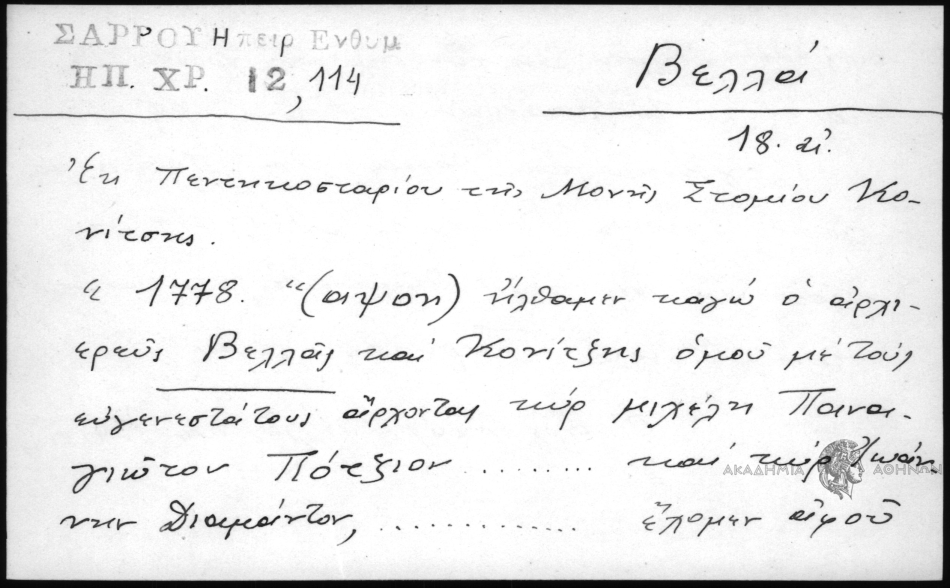 ΣΑΡΡΟΥ Ηπειρ Ενθυμ
ΗΠ. ΧΡ. 12, 114
Βελλά
18. αἰ.
Ἐκ Πεντηκοσταρίου τῆς Μονῆς Στομίου Κο-
νίτσης.
1778. "(αψοη) ἤλθαμεν καγώ ὁ ἀρχι-
ερεῦς Βελλᾶς καί Κονίτξης ὁμοῦ μέ τούς
εὐγενεστάτους ἄρχοντας κύρ μιχέλη Πανα-
γιῶτον Πότξιον ......... καί κύρ Ἰωάν-
νην Διαμάντον, ............. ἔλομεν ἀφοῦ
ΑΚΑΔΗΜΙΑ ΑΘΗΝΩΝ